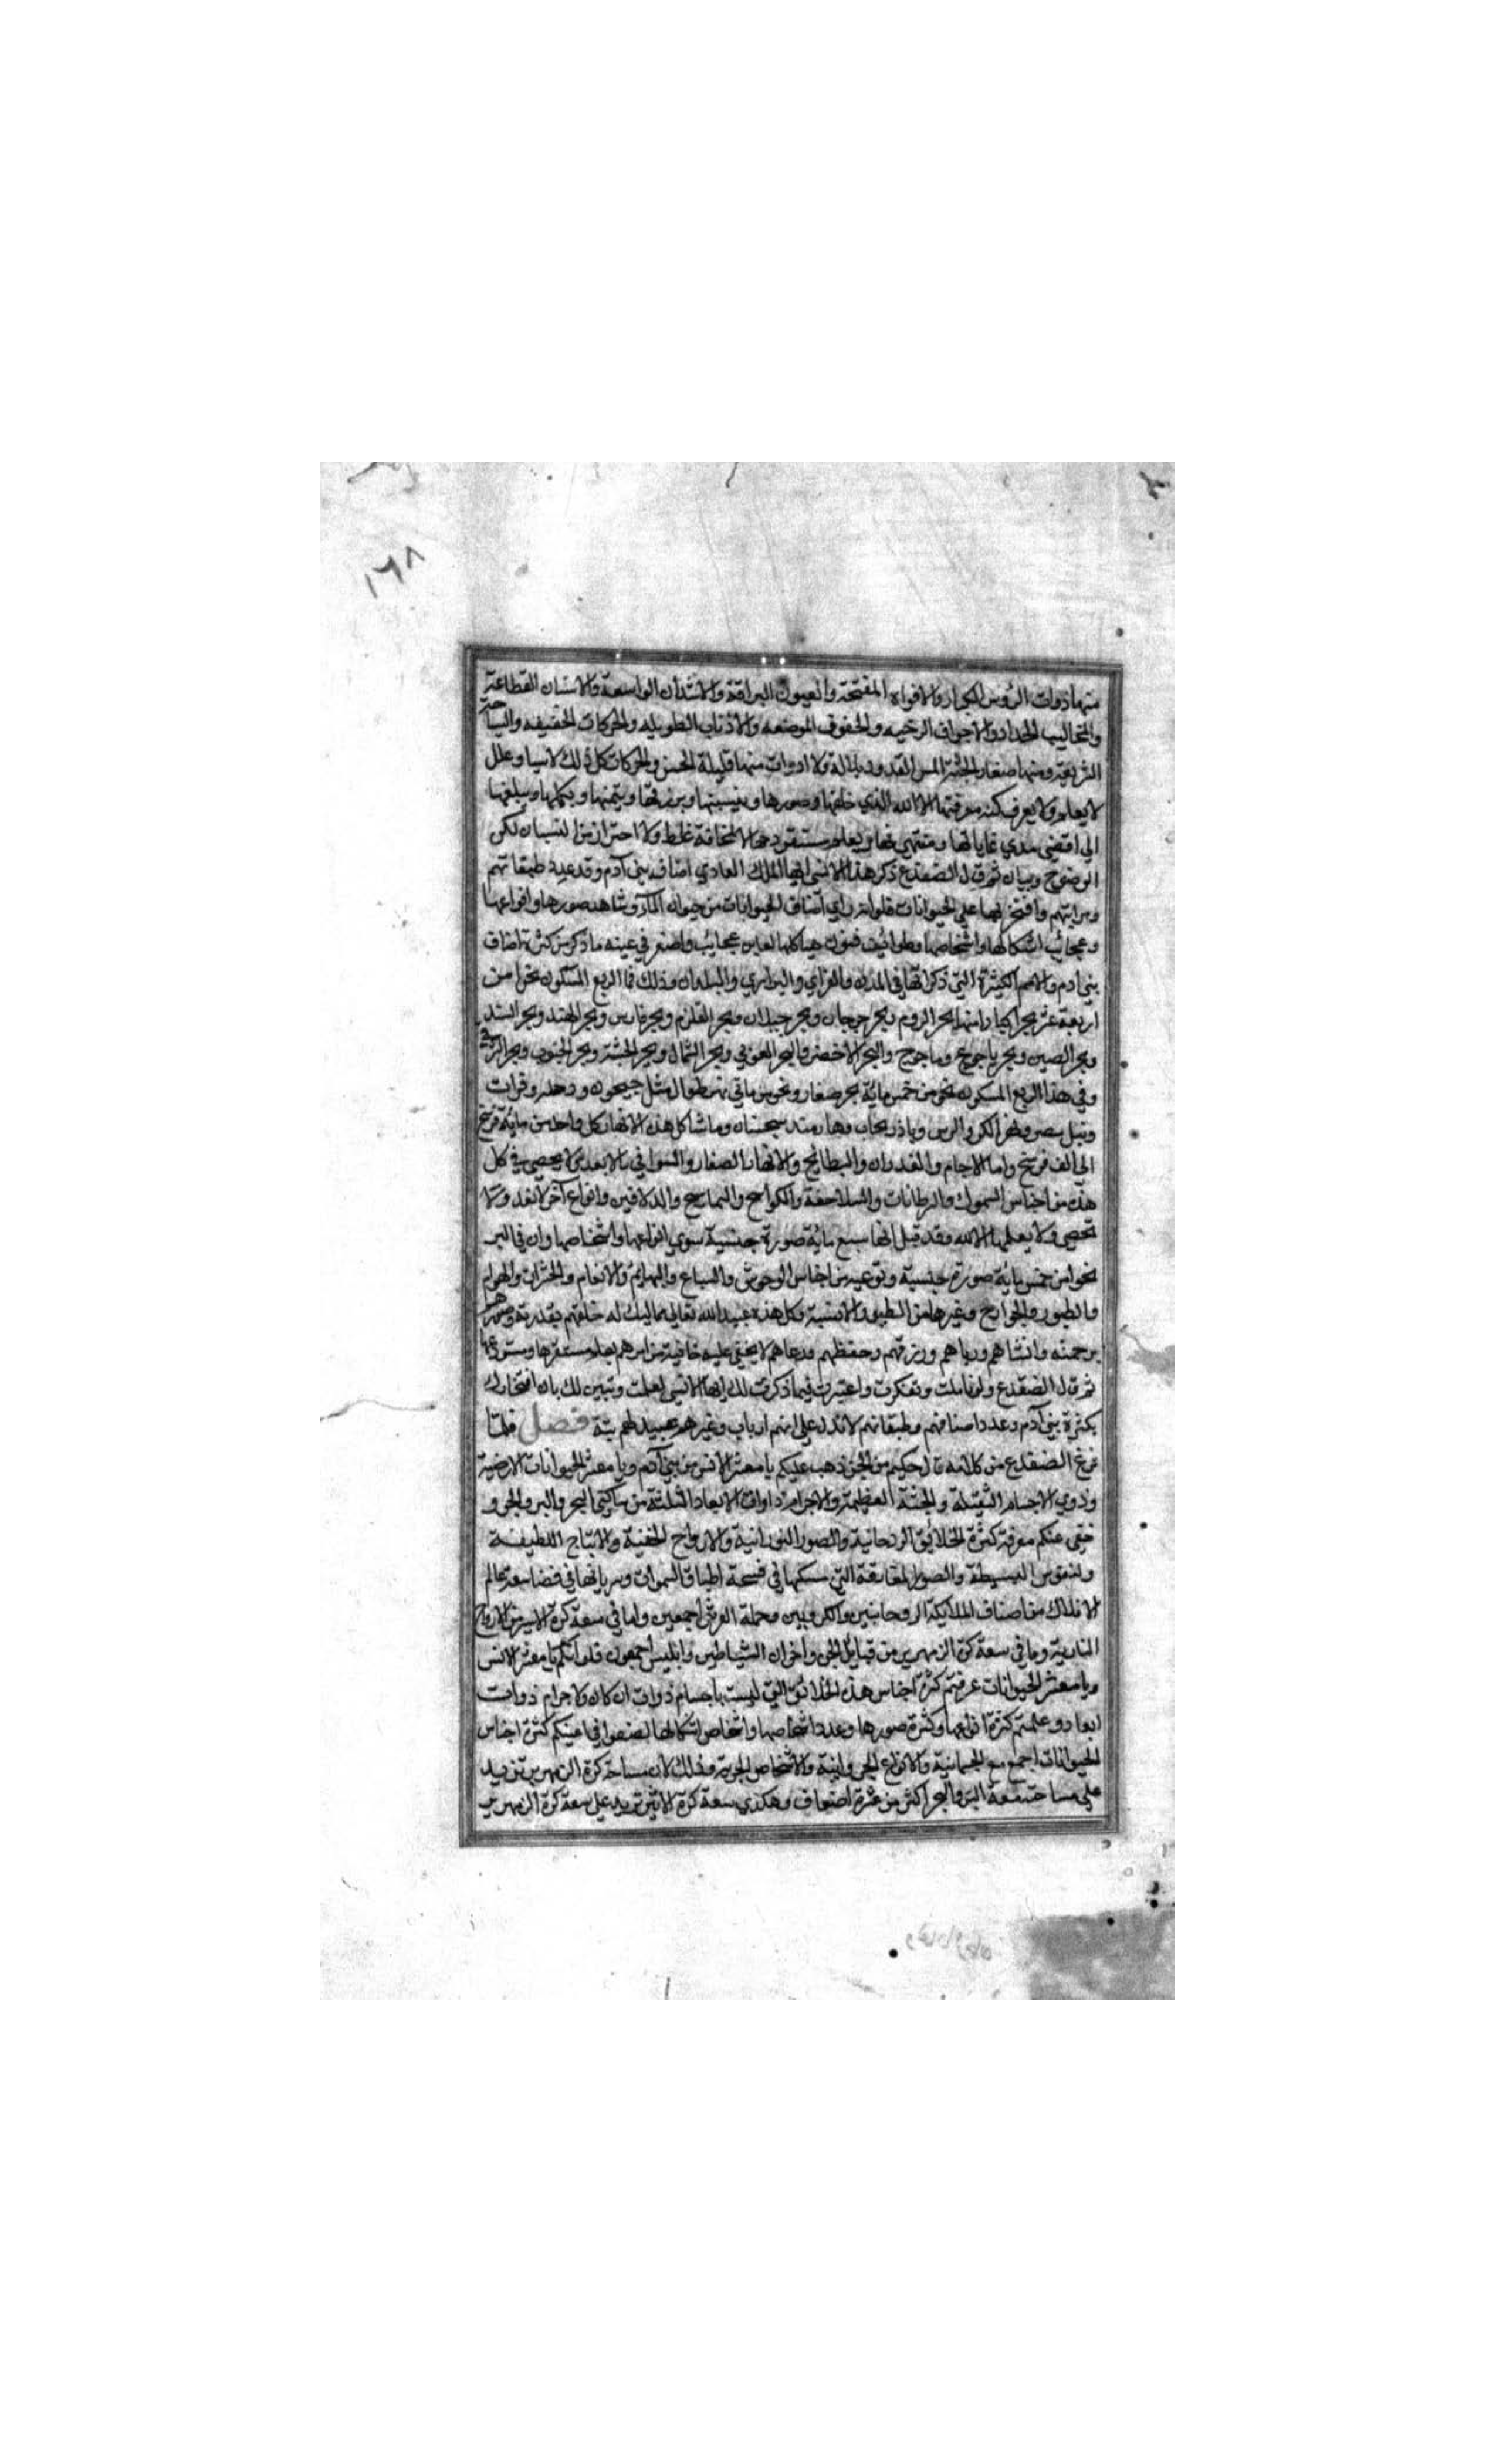 ١٦٨
منها ذوات الرؤس الكبار والافواه المفتحة والعيون البراقة والاشداق الواسعة والاسنان القطاعة
والمخاليب الحداد والاجواف الرخيه والاذناب الطويله والحركات الخفيفه والسباحة
السريعة ومنها صغار الجثة المس القدود بلا الة ولا ادوات منها قليلة الحس والحركات كل ذلك لاسباب وعلل
لا يعلم ولا يعرف كنه معرفتها الا الله الذي خلقها وصورها وينسيها ويرزقها ويتمها ويكملها ويبلغها
الي اقصي مدي غاياتها ومنتهي ويعلم مستقر لا لمخافة غلط ولا احتراز من النسيان لكن
الوضوح وبيان ثم قال الضفدع ذكر هذا الانسي ايها الملك العادي اصناف بني آدم وقد عدد طبقاتهم
ومراتبهم وافتخر بها علي الحيوانات فلو انه راي اصناف الحيوانات من حيوان المآء وشاهد صورها وانواعها
وعجائب اشكالها واشخاصها وطوائف فنون هياكلها لعاين عجايب واصغر في عينه ما ذكر من كثرة اصناف
بني ادم والامم الكثيرة التي ذكر انها في المدن والقراي والبراري والبلدان وذلك فما الربع المسكون نحوا من
اربعة عشر بحرا كبارا منها بحر الروم وبحر جرجان وبحر جيلان وبحر القلزم وبحر فارس وبحر الهند وبحر السند
وبحر الصين وبحر ياجوج وماجوج والبحر الاخضر والبحر الغربي وبحر الشمال وبحر الحبشة وبحر الجنوب وبحر الشرقي
وفي هذا الربع المسكون نحو من خمس مائة بحر صغار ونحو من مائتي نهر طوال مثل جيحون ودجلة وفرات
ونيل مصر ونهر الكر والرس وباذربجاب سجستان وما شاكل هذه الانهار كل واحد من مائة فرسخ
الي الف فرسخ واما الاجام والغدران والبطائح والانهار الصغار والسواقي ما لا يعد ولا يحصي وفي كل
هذه من اجناس السموك والسرطانات والسلاحفة والكواسج والتماسيح والدلافين وانواع آخر لا تعد ولا
تحصي ولا يعلمها الا الله وقد قيل انها سبع مائة صورة جنسية سوي انواعها واشخاصها وان في البر
نحوا من خمس مائة صورة جنسية ونوعيه من اجناس الوحوش والسباع والبهايم والانعام والحشرات والهوام
والطيور والجوارح وغيرها من الطيور الانسية وكل هذه عبيد الله تعالي مماليك له خلقهم بقدرته وصورهم
برحمته وانشاهم ورباهم ورزقهم وحفظهم ورعاهم لا يخفي عليه خافية من امرهم يعلم مستقرها ومستودعها
ثم قال الضفدع ولو تاملت وتفكرت واعتبرت فيما ذكرت لك ايها الانسي لعلمت وتبين لك بان افتخارك
بكثرة بني آدم وعدد اصنافهم وطبقاتهم لا تدل علي انهم ارباب وغيرهم عبيد لهم بتة فصل فلما
فرغ الضفدع من كلامه قال حكيم من الجن ذهب عليكم يا معشر الانس من بني آدم ويا معشر الحيوانات الارضية
وذوي الاجسام الثقيلة والجثة العظيمة والاجرام ذاوات الابعاد الثلثة من ساكني البحر والبر والجو و
خفي عنكم معرفة كثرة الخلائق الروحانية والصور النورانية والارواح الخفية والاشباح اللطيفة
والنفوس البسيطة والصور المفارقة التي مسكنها في فسحة اطباق السموات وسريانها في فضا سعة عالم
الافلاك من اصناف الملائكة الروحانيين والكروبيين وحملة العرش اجمعين واما في سعة كرة الاثير من الارواح
النارية وما في سعة كرة الزمهرير من قبايل الجن واخوان الشياطين وابليس اجمعون فلو انكم يا معشر الانس
ويا معشر الحيوانات عرفتم كثرة اجناس هذه الخلائق التي ليست باجسام ذوات اركان ولا جرام ذوات
ابعاد وعلمتم كثرة انواعها وكثرة صورها وعدد اشخاصها واشخاص اشكالها لصغر في اعينكم كثرة اجناس
الحيوانات اجمع مع الجسمانية والانواع والاشخاص الجزية وذلك لان مساحة كرة الزمهرير تزيد
علي مساحة سعة البر والبحر اكثر من عشرة اضعاف وهكذي سعة كرة الاثير تزيد علي سعة كرة الزمهرير